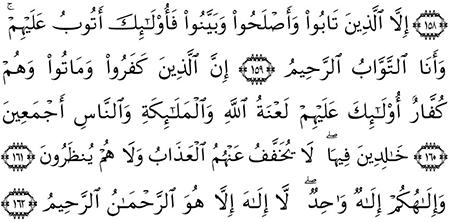 ﴿١٥٨﴾ إِلَّا ٱلَّذِينَ تَابُوا۟ وَأَصْلَحُوا۟ وَبَيَّنُوا۟ فَأُو۟لَٰٓئِكَ أَتُوبُ عَلَيْهِمْ ۚ
وَأَنَا ٱلتَّوَّابُ ٱلرَّحِيمُ ﴿١٥٩﴾ إِنَّ ٱلَّذِينَ كَفَرُوا۟ وَمَاتُوا۟ وَهُمْ
كُفَّارٌ أُو۟لَٰٓئِكَ عَلَيْهِمْ لَعْنَةُ ٱللَّهِ وَٱلْمَلَٰٓئِكَةِ وَٱلنَّاسِ أَجْمَعِينَ
﴿١٦٠﴾ خَٰلِدِينَ فِيهَا ۖ لَا يُخَفَّفُ عَنْهُمُ ٱلْعَذَابُ وَلَا هُمْ يُنظَرُونَ ﴿١٦١﴾
وَإِلَٰهُكُمْ إِلَٰهٌ وَٰحِدٌ ۖ لَّآ إِلَٰهَ إِلَّا هُوَ ٱلرَّحْمَٰنُ ٱلرَّحِيمُ ﴿١٦٢﴾